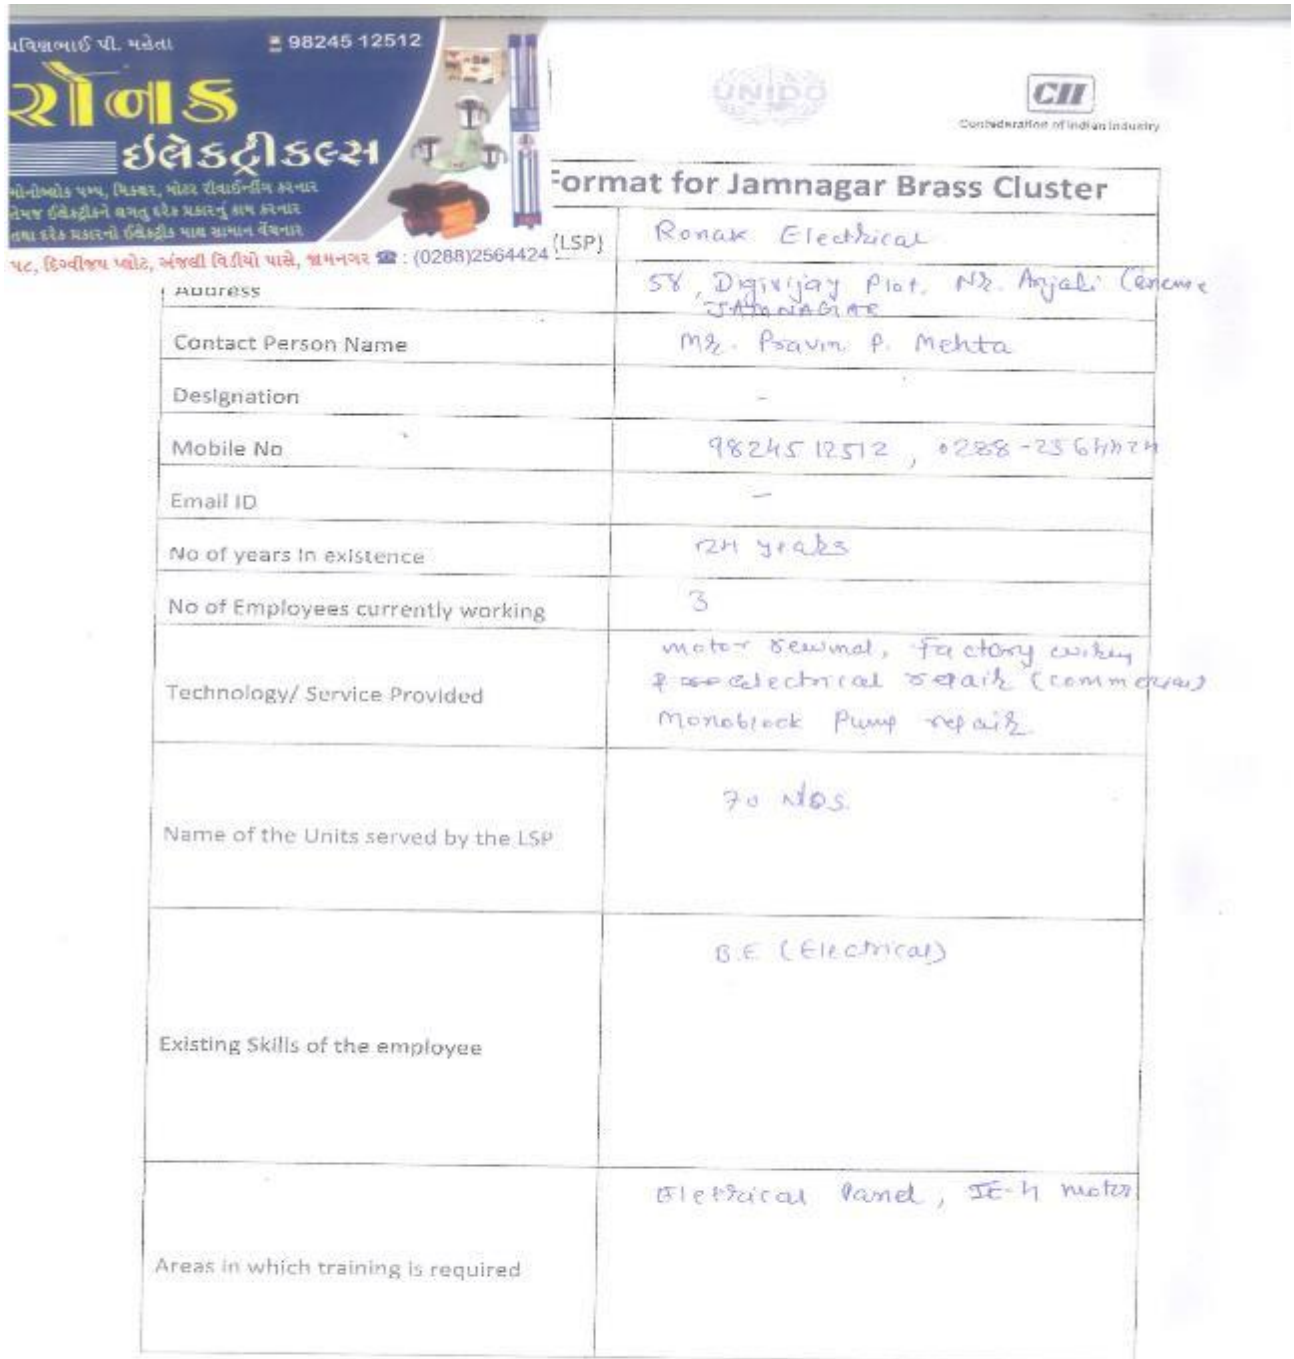 પ્રવિણભાઈ પી. મહેતા 98245 12512
રોનક
ઈલેક્ટ્રીકલ્સ
મોનોબ્લોક પમ્પ, મિક્ચર, મોટર રીવાઈન્ડીંગ કરનાર
તેમજ ઈલેક્ટ્રીકને લગતુ દરેક પ્રકારનું કામ કરનાર
તથા દરેક પ્રકારનો ઈલેક્ટ્રીક માલ સામાન વેંચનાર
૫૮, દિગ્વીજય પ્લોટ, અંજલી વિડીયો પાસે, જામનગર ☎ : (0288)2564424
UNIDO
CII
Confederation of Indian Industry
Format for Jamnagar Brass Cluster
(LSP) Ronak Electrical
Address 58, Digvijay Plot, Nr. Anjali
JAMNAGAR
Contact Person Name Mr. Pravin P. Mehta
Designation -
Mobile No 9824512512, 0288-2564424
Email ID -
No of years in existence 24 years
No of Employees currently working 3
motor rewind, Factory
Technology/ Service Provided electrical repair (commercial)
Monoblock Pump repair
70 Nos.
Name of the Units served by the LSP
B.E (Electrical)
Existing Skills of the employee
Eletrical Panel, IE-4 motor
Areas in which training is required